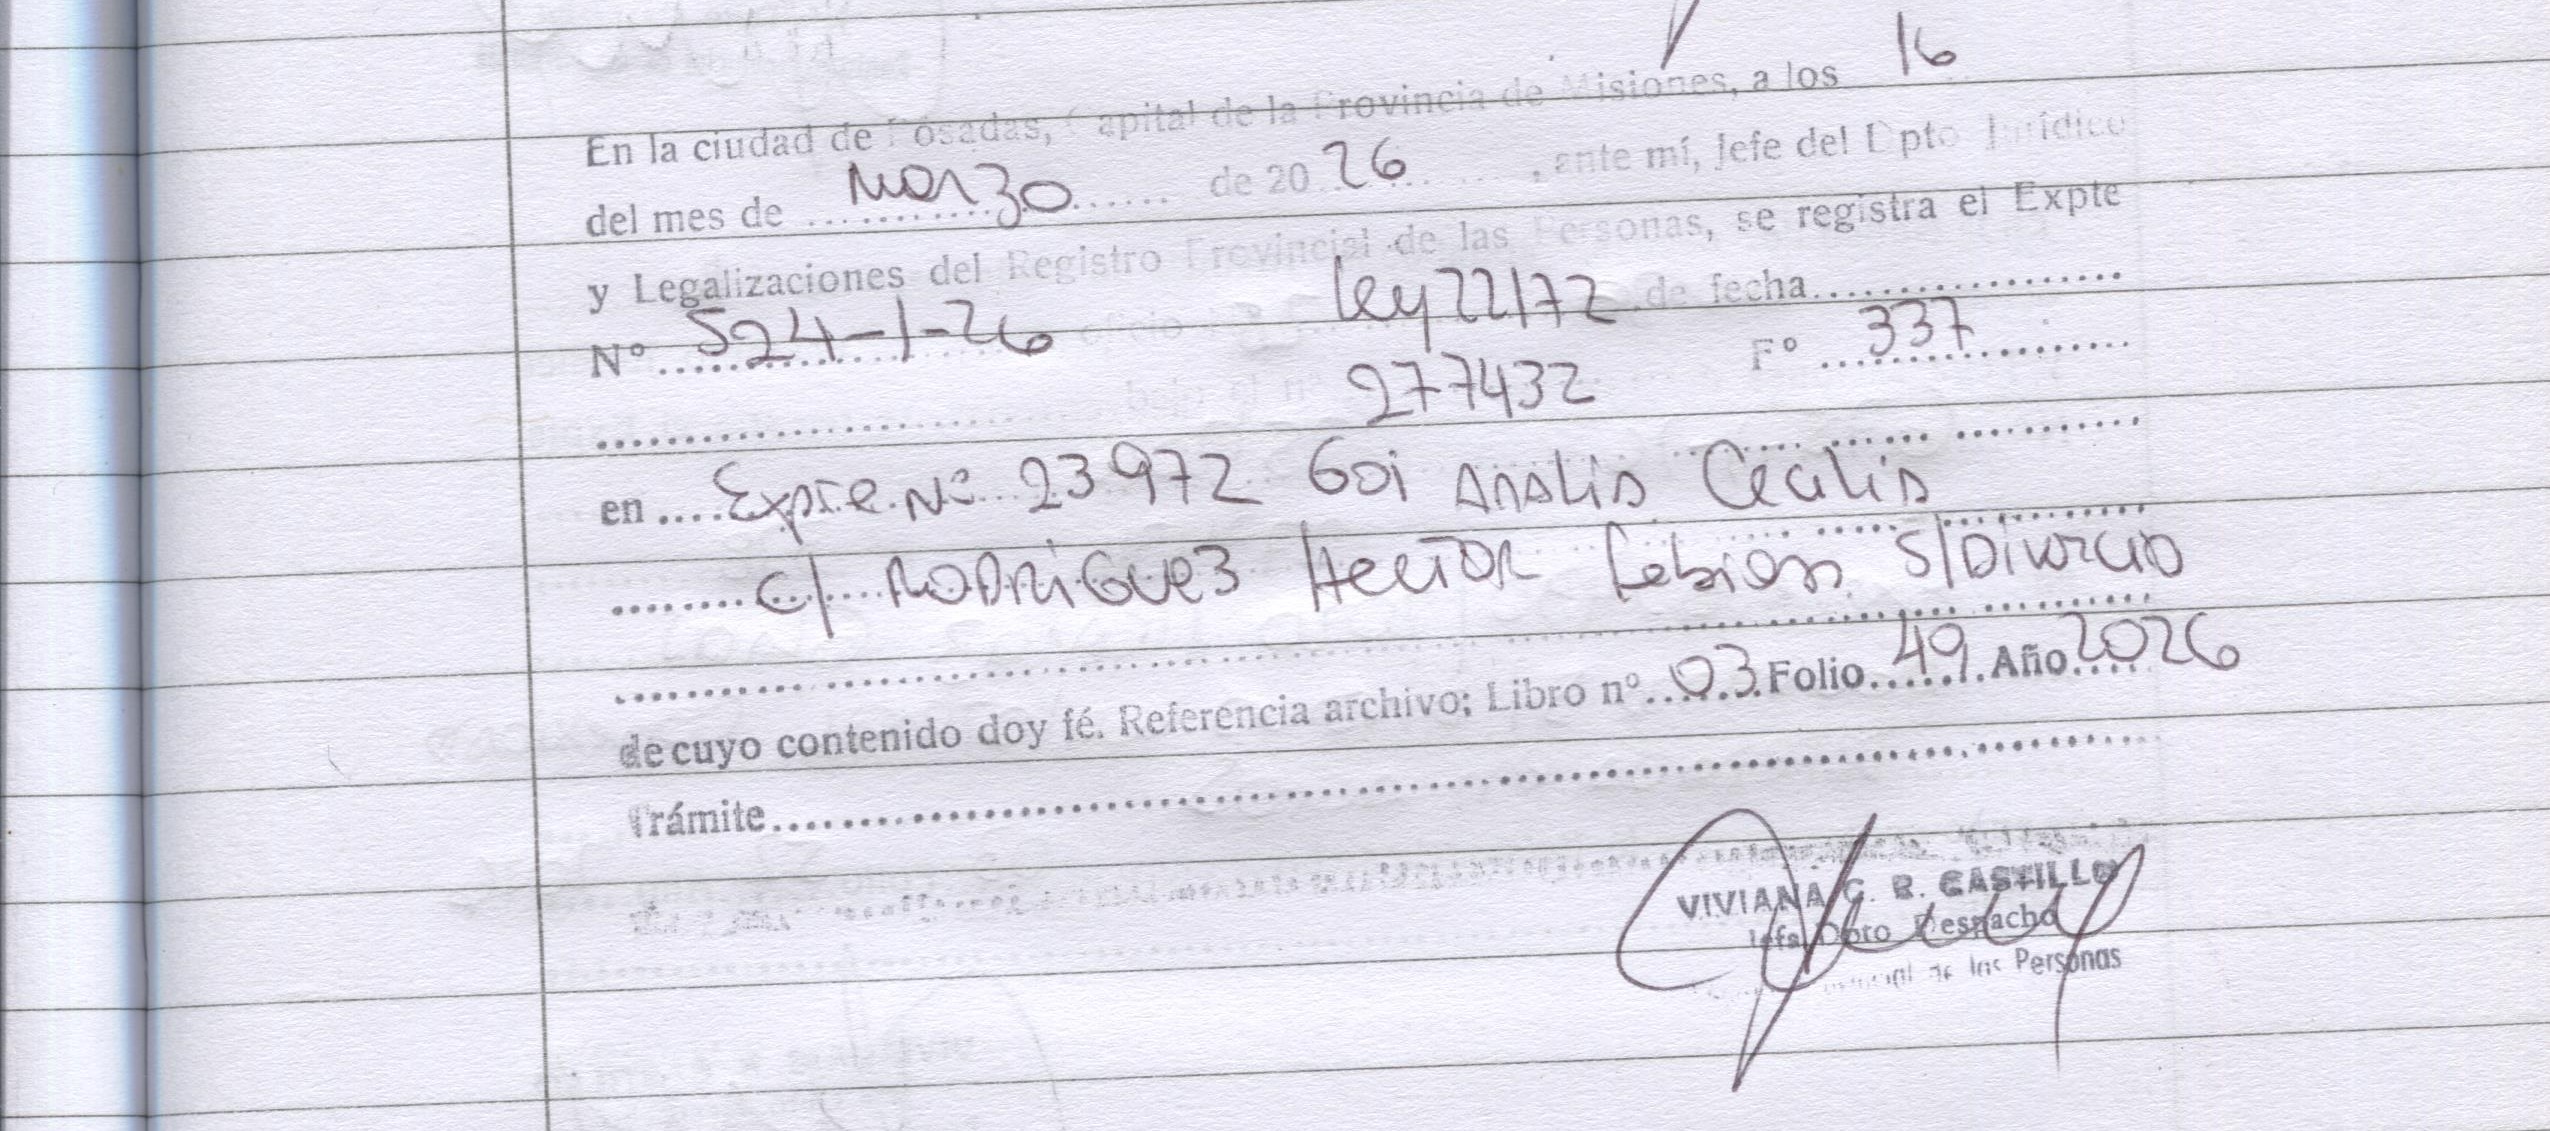 En la ciudad de Posadas, Capital de la Provincia de Misiones, a los 16
del mes de Marzo de 20 26, ante mí, jefe del Dpto Jurídico
y Legalizaciones del Registro Provincial de las Personas, se registra el Expte
Nº 524-1-26 oficio Ley 22172 de fecha
bajo el nº 277432 Fº 337
en Expte. Nº 23972 Goi Analia Cecilia
c/ Rodriguez Hector Fabian s/Divorcio
de cuyo contenido doy fé. Referencia archivo; Libro nº 03 Folio 49 Año 2026
Trámite
VIVIANA C. R. CASTILLO
Jefa Dpto Despacho
de las Personas